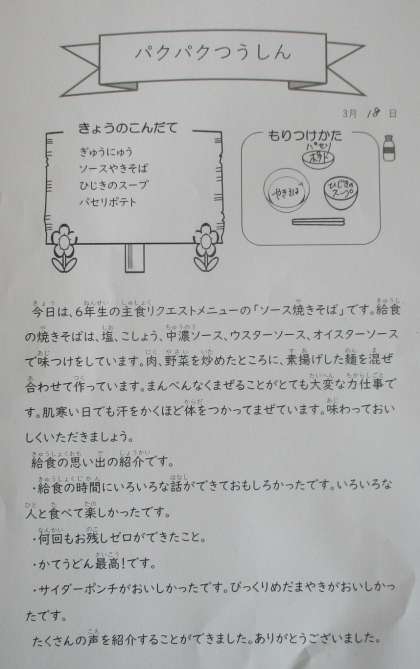 パクパクつうしん
3月 18 日
きょうのこんだて
ぎゅうにゅう
ソースやきそば
ひじきのスープ
パセリポテト
もりつけかた
パセリ
ポテト
やきそば
ひじきの
スープ
今日は、6年生の主食リクエストメニューの「ソース焼きそば」です。給食
の焼きそばは、塩、こしょう、中濃ソース、ウスターソース、オイスターソース
で味つけをしています。肉、野菜を炒めたところに、素揚げした麺を混ぜ
合わせて作っています。まんべんなくまぜることがとても大変な力仕事で
す。肌寒い日でも汗をかくほど体をつかってまぜています。味わっておい
しくいただきましょう。
給食の思い出の紹介です。
・給食の時間にいろいろな話ができておもしろかったです。いろいろな
人と食べて楽しかったです。
・何回もお残しゼロができたこと。
・かてうどん最高!です。
・サイダーポンチがおいしかったです。びっくりめだまやきがおいしかっ
たです。
たくさんの声を紹介することができました。ありがとうございました。